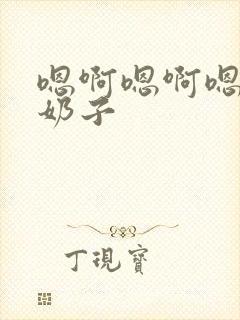 嗯啊嗯啊嗯
奶子
丁現寶